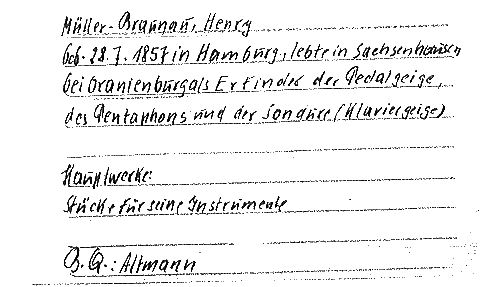 Müller-Braunau, Henry
Geb. 28.7.1857 in Hamburg, lebte in Sachsenhausen
bei Oranienburg als Erfinder der Pedalgeige,
des Pentaphons und der Sondure (Klaviergeige)
Hauptwerke:
Stücke für seine Instrumente
B.Q.: Altmann